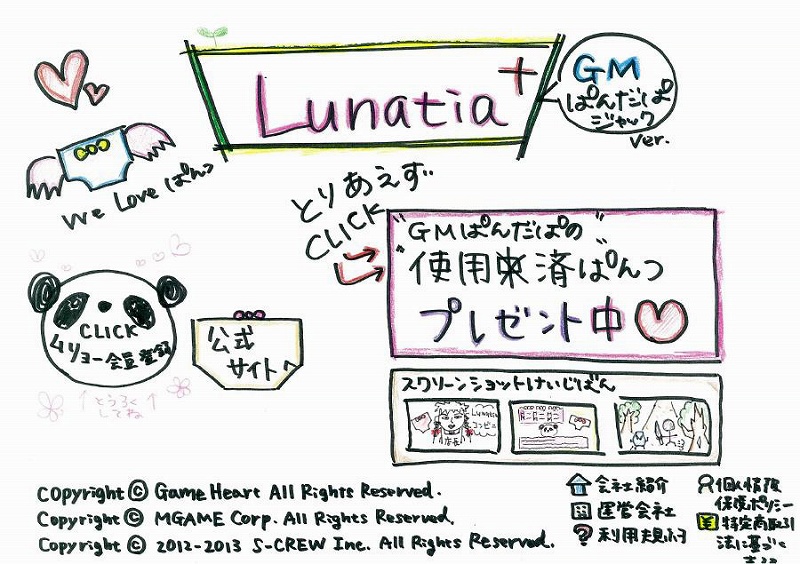 Lunatia+
GM
ぱんだぱ
ジャック
ver.
We Love ぱんつ
とりあえず
CLICK
"GMぱんだぱの"
"使用未済ぱんつ"
プレゼント中
CLICK
ムリョー会員登録
↑とうろく↑
してね
公式
サイトへ
スクリーンショットけいじばん
Lunatia
コンビニ
店長
Copyright © Game Heart All Rights Reserved.
Copyright © MGAME Corp. All Rights Reserved.
Copyright © 2012-2013 S-CREW Inc. All Rights Reserved.
会社紹介
運営会社
? 利用規約
個人情報
保護ポリシー
¥ 特定商取引
法に基づく